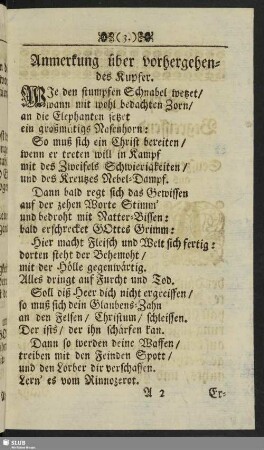 (3.)
Anmerkung über vorhergehen-
des Kupfer.
WJe den stumpfen Schnabel wetzet/
wann mit wohl bedachten Zorn/
an die Elephanten setzet
ein großmütigs Nasenhorn:
So muß sich ein Christ bereiten/
wenn er treten will in Kampf
mit des Zweifels Schwierigkeiten/
und des Kreutzes Nebel-Dampf.
Dann bald regt sich das Gewissen
auf der zehen Worte Stimm'
und bedroht mit Natter-Bissen:
bald erschrecket GOttes Grimm:
Hier macht Fleisch und Welt sich fertig:
dorten steht der Behemoht/
mit der Hölle gegenwärtig.
Alles dringt auf Furcht und Tod.
Soll diß Heer dich nicht ergreiffen/
so muß sich dein Glaubens-Zahn
an den Felsen/ Christum/ schleiffen.
Der ists/ der ihn schärfen kan.
Dann so werden deine Waffen/
treiben mit den Feinden Spott/
und den Lorber dir verschaffen.
Lern' es vom Rinnozerot.
A 2 Er-
SLUB